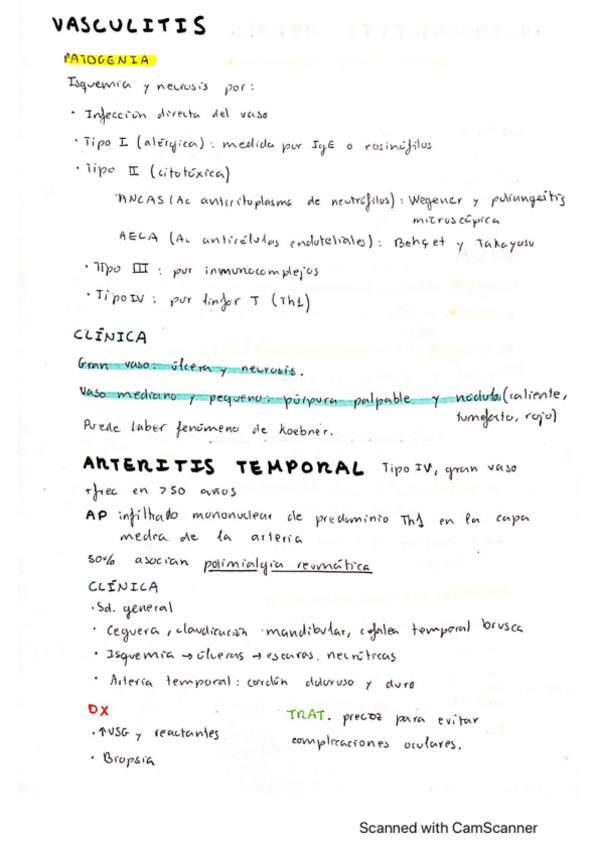 VASCULITIS
PATOGENIA
Isquemia y necrosis por:
· Infección directa del vaso
· Tipo I (alérgica): medida por IgE o eosinófilos
· Tipo II (citotóxica)
ANCAS (Ac anticitoplasma de neutrófilos): Wegener y poliangeítis
microscópica
AECA (Ac anticélulas endoteliales): Behçet y Takayasu
· Tipo III: por inmunocomplejos
· Tipo IV: por linfor T (Th1)
CLÍNICA
Gran vaso: úlcera y necrosis.
Vaso mediano y pequeno: púrpura palpable y nódulo (caliente,
tumefacto, rojo)
Puede haber fenómeno de koebner.
ARTERITIS TEMPORAL Tipo IV, gran vaso
+frec en >50 años
AP infiltrado mononuclear de predominio Th1 en la capa
media de la arteria
50% asocian polimialgia reumática
CLÍNICA
· Sd. general
· Ceguera, claudicación mandibular, cefalea temporal brusca
· Isquemia → úlceras → escaras necróticas
· Arteria temporal: cordón doloroso y duro
DX
· ↑VSG y reactantes
· Biopsia
TRAT. precoz para evitar
complicaciones oculares.
Scanned with CamScanner